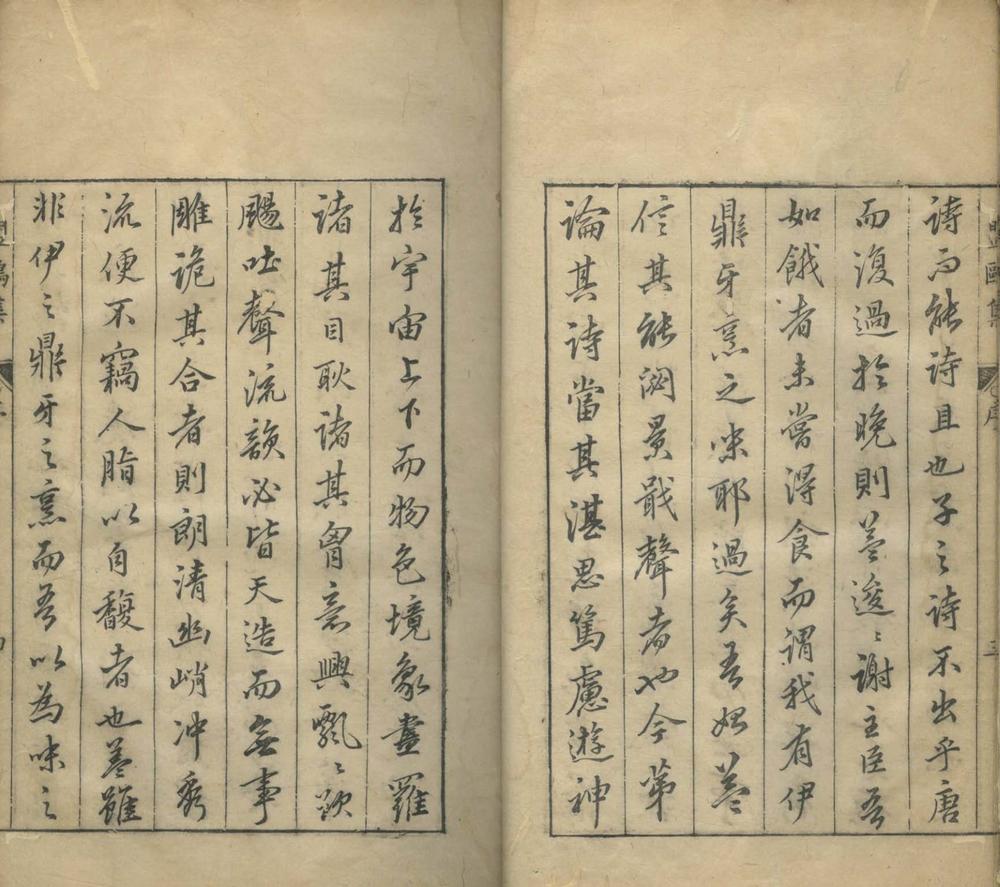 詩而能詩且也子之詩不出乎唐
而復過於晚則葢逡〻謝主臣吾
如餓者未嘗得食而謂我有伊
鼎牙烹之味耶過矣吾始葢
信其能閟景戢聲者也今第
論其詩當其湛思篤慮遊神
於宇宙上下而物色境象盡羅
諸其目耿諸其胷意興飄〻欻
颺吐聲流韻必皆天造而無事
雕詭其合者則朗清幽峭冲秀
流便不竊人脂以自馥者也葢雖
非伊之鼎牙之烹而吾以為味之